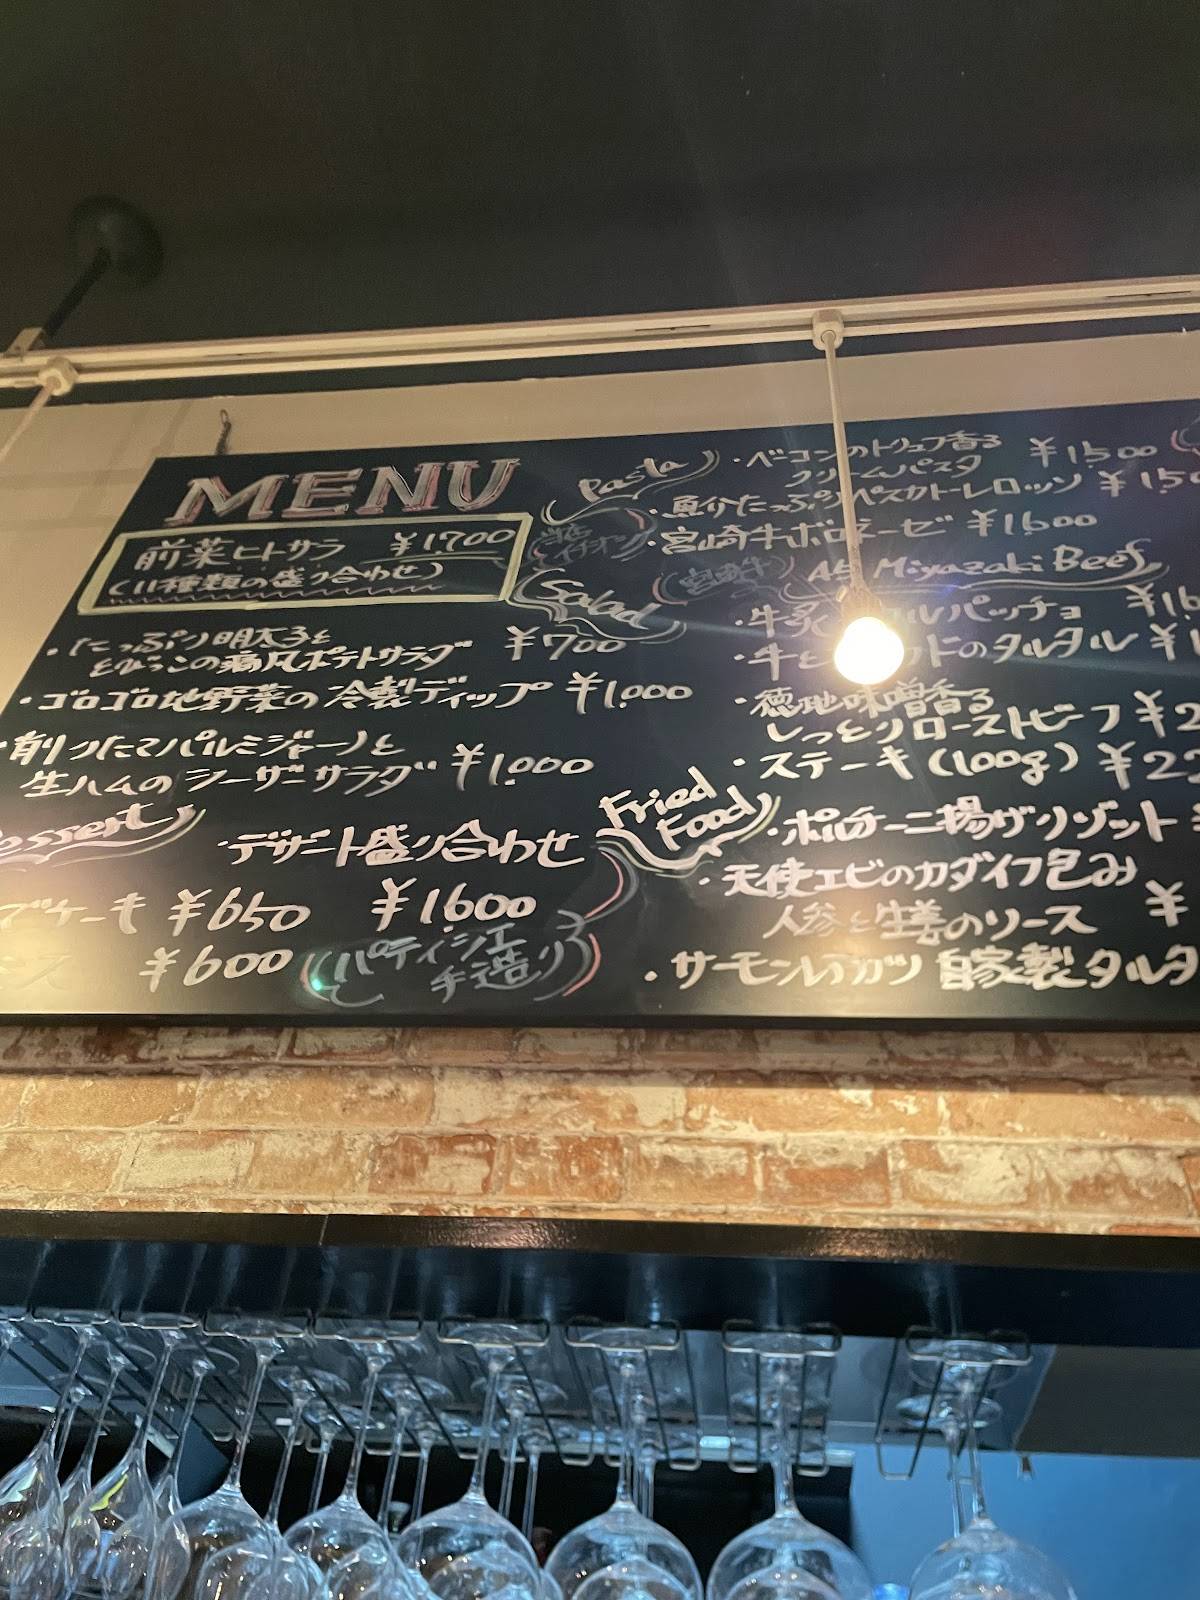 MENU
前菜ヒトサラ ¥1.700
(11種類の盛り合わせ)
Salad
・たっぷり明太子と
とびっこの痛風ポテトサラダ ¥700
・ゴロゴロ地野菜の冷製ディップ ¥1.000
・削りたてパルミジャーノと
生ハムのシーザーサラダ ¥1.000
デザート盛り合わせ
¥1.600
ケーキ ¥650
¥600
(パティシエ
手造り)
Pasta
・ベーコンのトリュフ香る
クリームパスタ ¥1500
・魚介たっぷりペスカトーレロッソ
・宮崎牛ボロネーゼ ¥1.600
当店
イチオシ
(宮崎牛) A5 Miyazaki Beef
・牛炙
・牛と のタルタル
・徳地味噌香る
しっとりローストビーフ
・ステーキ(100g)
Fried
Food
・ポルチーニ揚げリゾット
・天使エビのカダイフ包み
人参と生姜のソース
・サーモンレアカツ 自家製タルタ